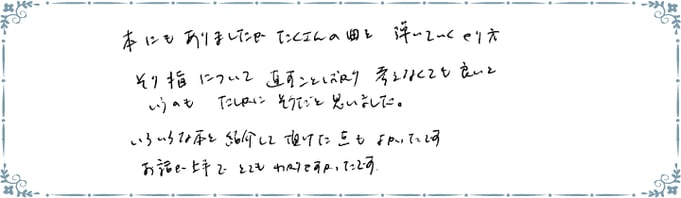 本にもありましたが たくさんの曲を 弾いていくやり方
そり指について 直すことばかり 考えなくても良いと
いうのも たしかに そうだと思いました。
いろいろな本を紹介して頂けた点も よかったです
お話が上手で とても わかりやすかったです。